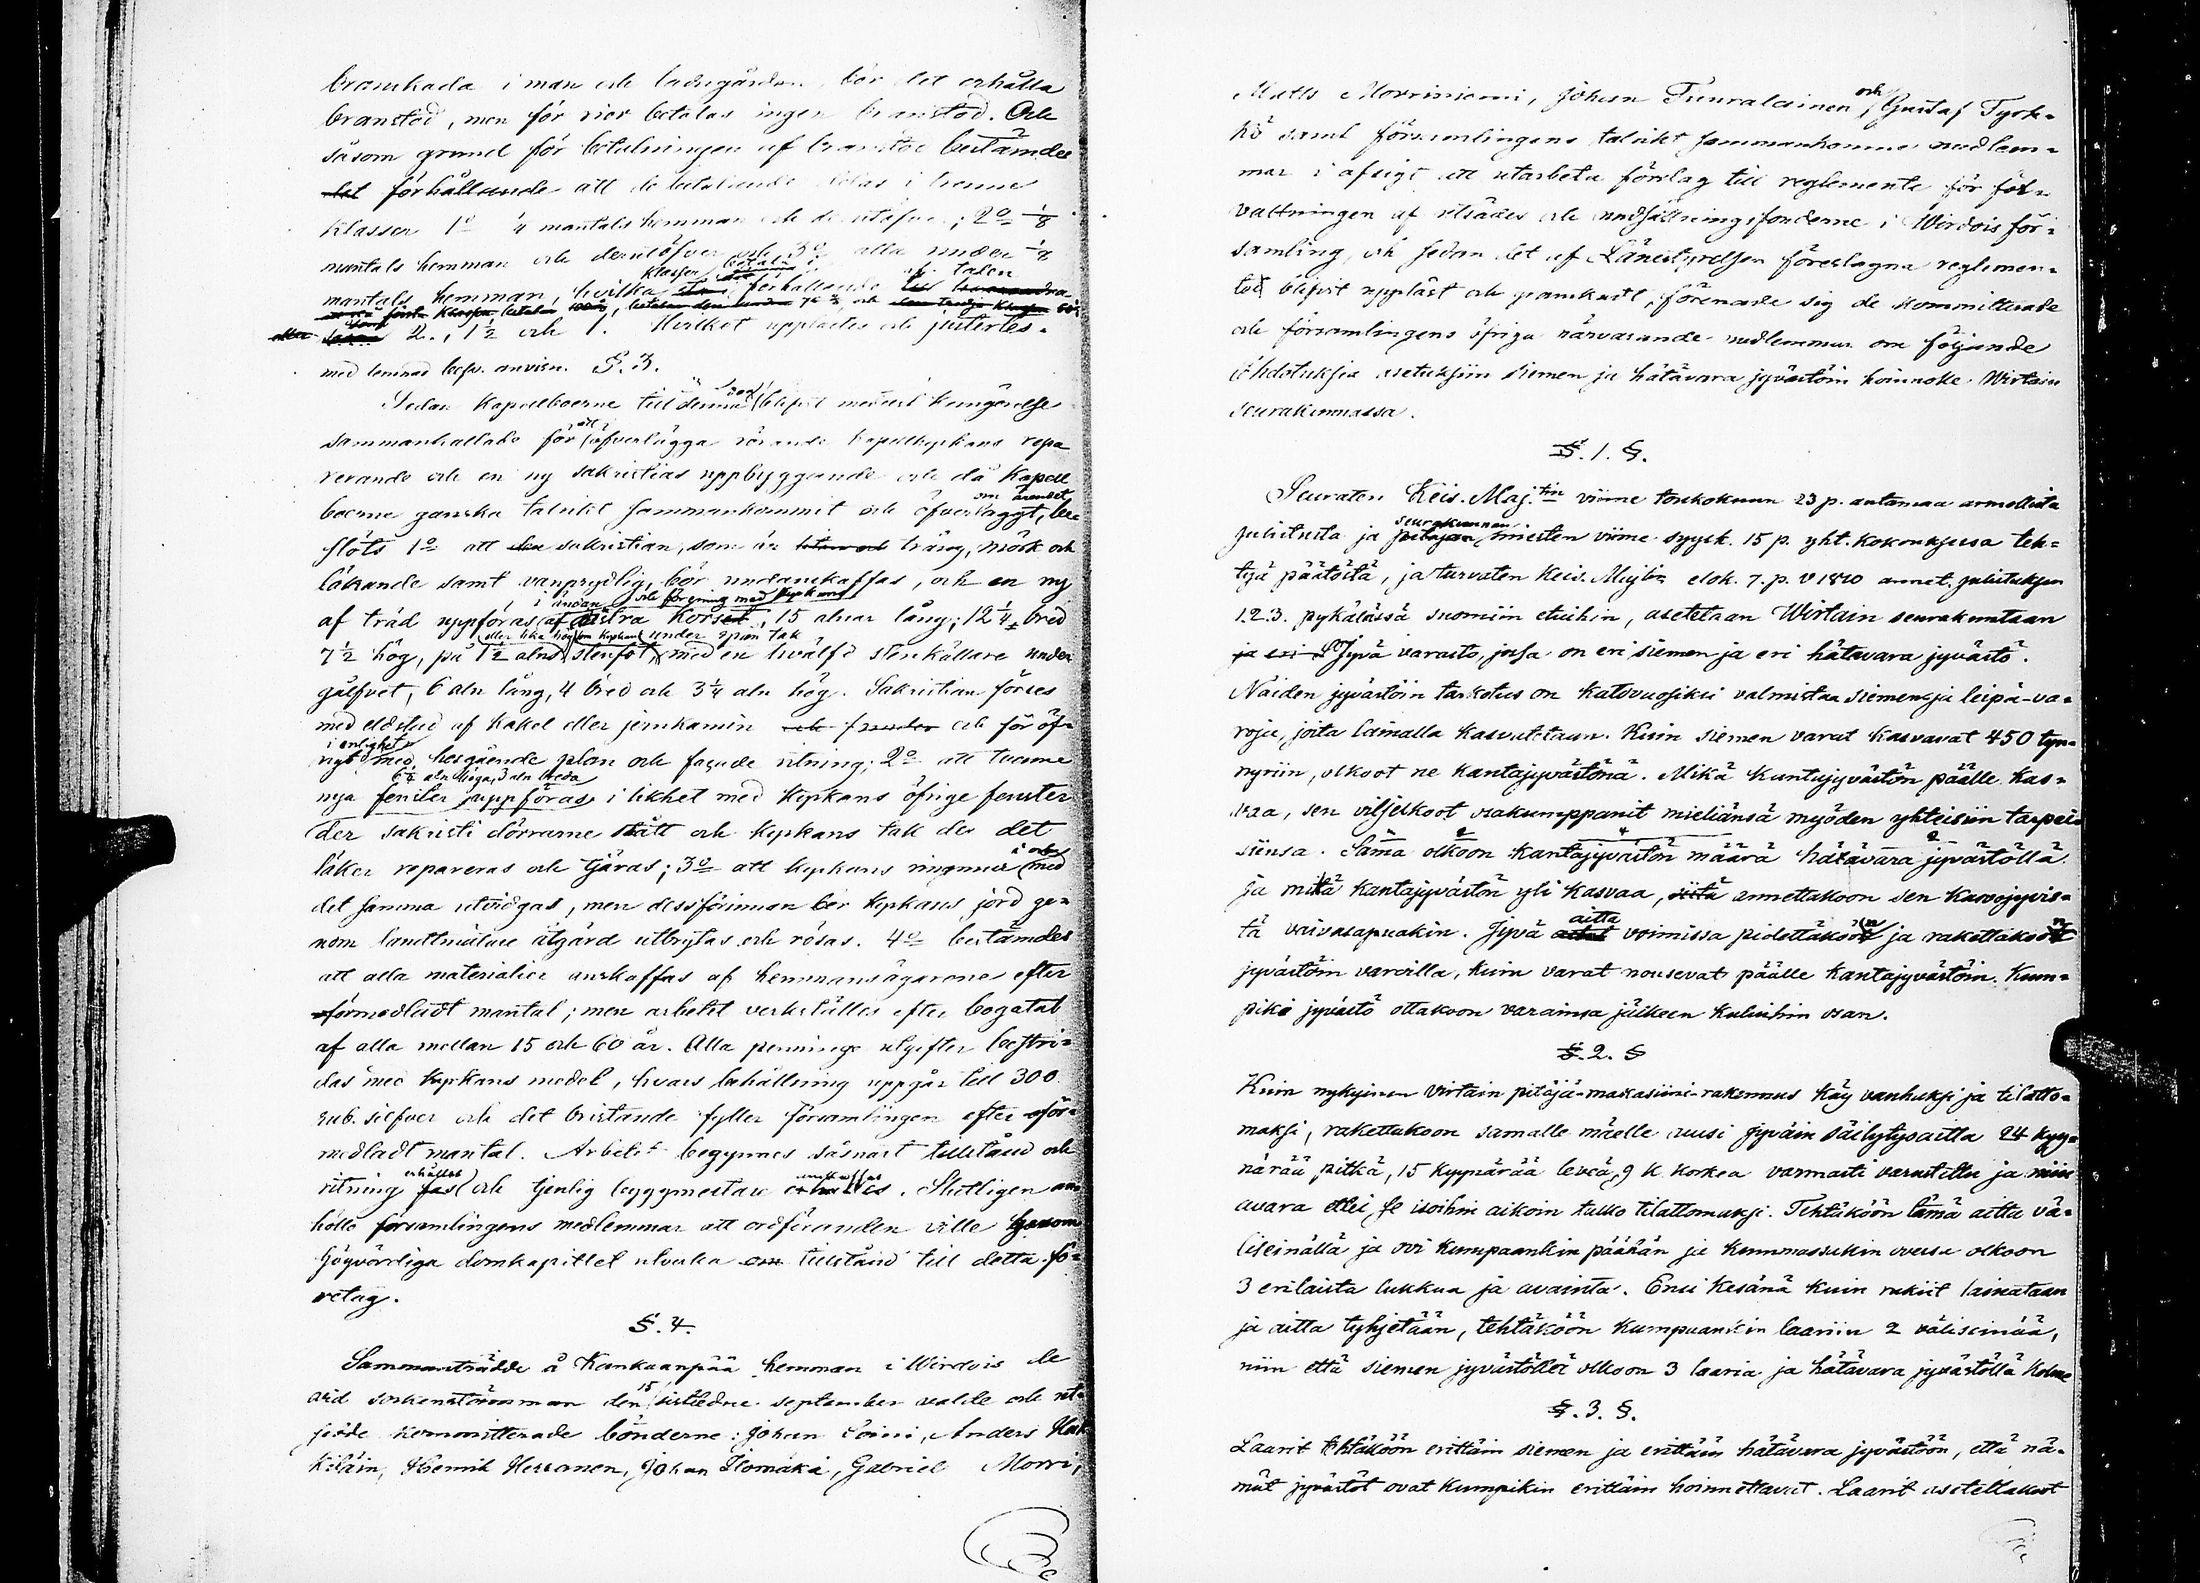 branskada i man och ladugården, bör det erhålla
branstod, men för rior betalas ingen branstod. Och
såsom grund för betalningen af branstod bestämdes
det förhållande att de betalande delas i trenne
klasser 1o 1/4 mantals hemman och derutöfver; 2o 1/8
mantals hemman och derutöfver och 3o alla under 1/8
mantals hemman, hvilka klasser betala i förhållande af talen
2., 1 1/2 och 1. Hvilket upplästes och justertes.
med lemnad besv. anvisn. §. 3.
Sedan kapellboerne till denna dag blifvit medelst kungörelse
sammankallade för att öfverlägga rörande kapellkyrkans repa
rerande och en ny sakristias uppbyggande och då kapell
boerne ganska talrikt sammankommit och om ärendet öfverlaggt, be
slöts 1o att sakristian, som är trång, mörk och
läkande samt vanprydlig, bör undanskaffas, och en ny
af träd uppföras i ändan af östra korset, och förening med kyrkan, 15 alnar lång; 12 1/4 bred
7 1/2 hög, eller lika hög som kyrkan under spån tak på 1 1/2 alns stenfot, med en hvälfd stenkällare under
gålfvet, 6 aln lång, 4 bred och 3 1/4 aln hög. Sakristian förses
med eldstad af kakel eller jernkamin och för öf-
rigt i enlighet med hosgående plan och façade ritning; 2o att tvenne
nya fenster 6 1/4 aln höga, 3 aln breda uppföras i likhet med kyrkans öfrige fenster
der sakristi dörrarne stått och kyrkans tak der det
läker repareras och tjäras; 3o att kyrkans ringmur i och med
det samma utvidgas, men dessförinnan bör kyrkans jord ge-
nom landtmätare åtgärd utbrytas och rösas. 4o bestämdes
att alla materialier anskaffas af hemmansägarne efter
oförmedladt mantal; men arbetet verkställes efter bogatal
af alla mellan 15 och 60 år. Alla penninge utgifter bestri-
das med kyrkans medel, hvars behållning uppgår till 300
rub. silfver och det bristande fyller församlingen efter oför-
medladt mantal. Arbetet begynnes såsnart tillstånd och
ritning erhållits och tjenlig byggmästare anskaffas. Slutligen an
höllo församlingens medlemmar att ordföranden ville hos
högvördiga domkapitlet utverka tillstånd till detta fö-
retag.
§. 4.
Sammanträdde å Kankaanpää hemman i Wirdois de
vid sockenstämman den 15 sistledne september valde och ut-
sedde kommitterade bönderne: Johan Toini, Anders Kuk
kiläin, Henrik Herranen, Johan Ilomäki, Gabriel Morri,
Matts Morriniemi, Johan Tuuralainen och Gustaf Tyrk-
kö samt församlingens talrikt sammankomne medlem-
mar i afsigt att utarbeta förslag till reglemente för för-
valtningen af utsädes och undsättningsfonderne i Wirdois för-
samling, och sedan det af Länestyrelsen föreslagna reglemen-
tet blifvit uppläst och granskadt, förenade sig de kommitterade
och församlingens öfriga närvarande medlemmar om följande
Ehdotuksia asetuksiin siemen ja hätävara jyvästöin hoinnolle Wirtain
seurakunnassa.
§. 1. §.
Seuraten Keis. Maj.tin viime toukokuun 23 p. antamaa armollista
julistusta ja seurakunnan miesten viime syysk. 15 p. yht. kokouksessa teh-
tyjä päätöstä, ja turvaten Keis. Maj:tin elok. 7. p. v 1840 annet. julistuksen
1.2.3. pykälässä suomiin etuihin, asetetaan Wirtain seurakuntaan
Jyvä varasto, jossa on eri siemen ja eri hätävara jyvästö.
Näiden jyvästöin tarkotus on katovuosiksi valmistaa siemen ja leipä-va-
roja, joita lainalla kasvatetaan. Kuin siemen varat kasvavat 450 tyn-
nyriin, olkoot ne kantajyvästönä. Mikä kantajyvästön päälle kas-
vaa, sen viljelkoot osakumppanit mieliänsä myöden yhteisiin tarpei-
siinsa. Sama olkoon kantajyvästön määrä hätävara jyvästöllä
ja mitä kantajyvästön yli kasvaa, annettakoon sen kasvojyvis-
tä vaivasapuakin. Jyvä aitta voimissa pidettäköön ja rakettakoon
jyvästöin varoilla, kuin varat nousevat päälle kantajyvästöin. Kum-
piki jyvästö ottakoon varainsa jälkeen kuluihin osan.
§. 2. §
Kuin nykyinen Virtain pitäjä-makasiini-rakennus käy vanhuksi ja tilatto-
maksi, rakettakoon samalle mäelle uusi jyväin säilytysaitta 24 kyy-
närää pitkä, 15 kyynärää leveä, 9 k korkea varmasti varustettu ja niin
avara ettei se isoihin aikoin tulko tilattomaksi. Tehtäköön tämä aitta vä-
liseinällä ja ovi kumpaankin päähän ja kummassakin ovessa olkoon
3 erilaista lukkua ja avainta. Ensi kesänä kuin rukiit lainataan
ja aitta tyhjetään, tehtäköön kumpaankin laariin 2 väliseinää,
niin että siemen jyvästöllä olkoon 3 laaria ja hätävara jyvästöllä kolme
§. 3. §.
Laarit tehtäköön erittäin siemen ja erittäin hätävara jyvästöön, että nä-
mät jyvästöt ovat kumpikin erittäin hoinnettavat. Laarit asetettakoot